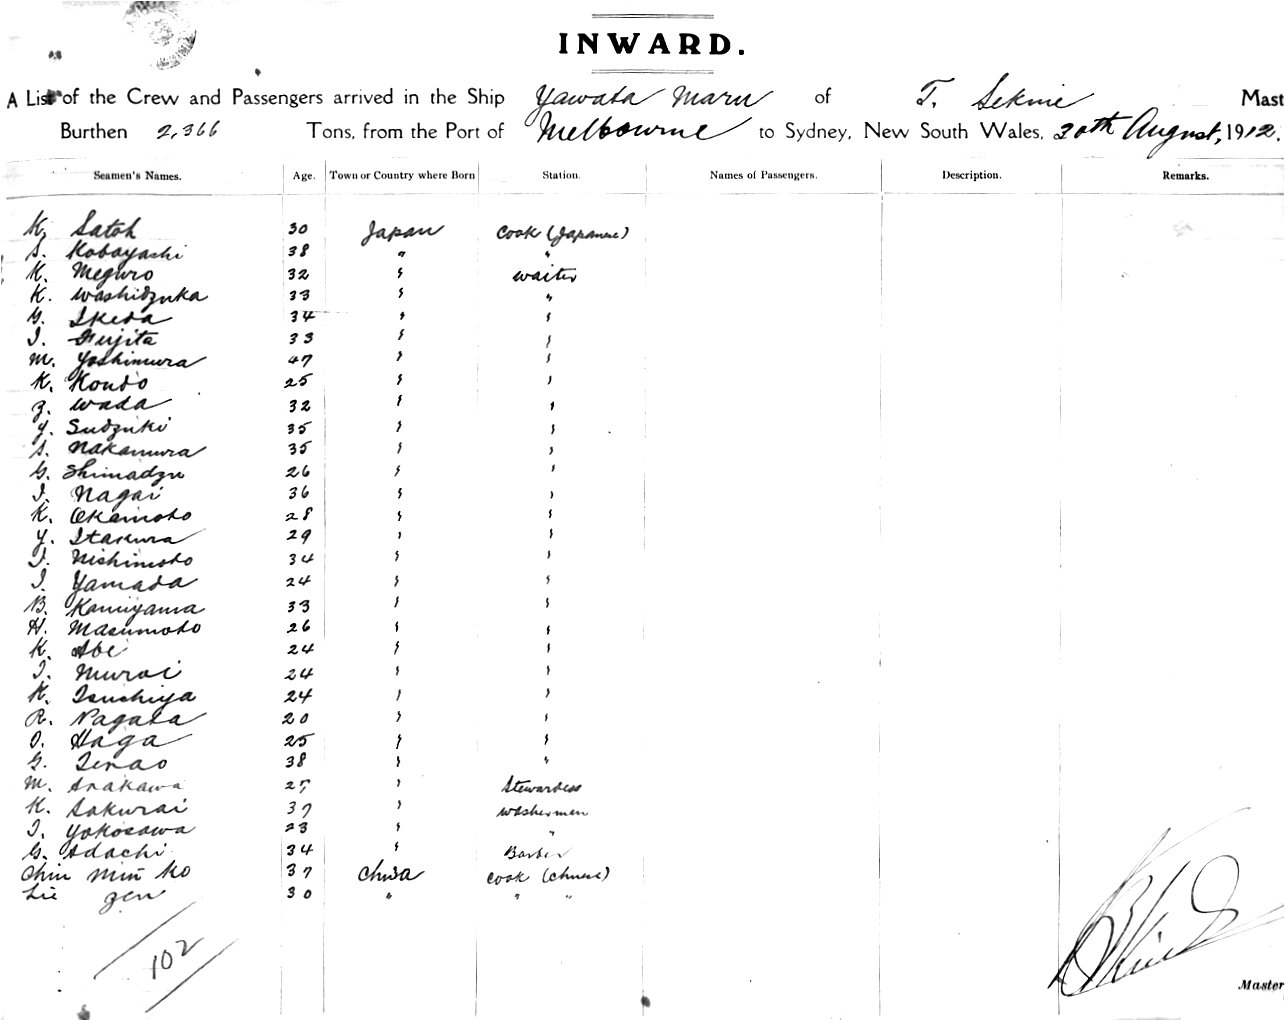 INWARD.
A List of the Crew and Passengers arrived in the Ship Yawata Maru of T. Sekine Mast
Burthen 2,366 Tons, from the Port of Melbourne to Sydney, New South Wales, 20th August, 1912.
Seamen's Names. Age. Town or Country where Born Station. Names of Passengers. Description. Remarks.
K. Satoh 30 Japan Cook (Japanese)
S. Kobayashi 38 " "
K. Meguro 32 " waiter
K. Washidzuka 33 " "
G. Ikeda 34 " "
I. Fujita 33 " "
M. Yoshimura 47 " "
K. Kondo 25 " "
Z. Wada 32 " "
Y. Sudzuki 35 " "
S. Nakamura 35 " "
G. Shimadzu 26 " "
I. Nagai 36 " "
K. Okamoto 28 " "
Y. Itakura 29 " "
I. Nishimoto 34 " "
I. Yamada 24 " "
B. Kamiyama 33 " "
H. Masumoto 26 " "
K. Abe 24 " "
I. Murai 24 " "
K. Tsuchiya 24 " "
R. Nagata 20 " "
O. Haga 25 " "
G. Terao 38 " "
M. Arakawa 27 " Stewardess
K. Sakurai 37 " washermen
I. Yokosawa 23 " "
G. Adachi 34 " Barber
Chin Min Ko 37 China Cook (Chinese)
Lie Zen 30 " " "
102
Master